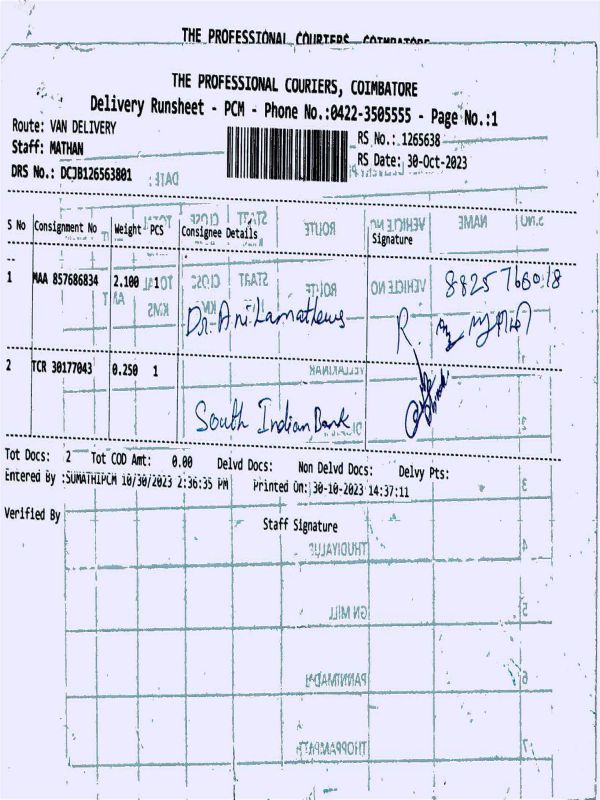 THE PROFESSIONAL COURIERS, COIMBATORE
THE PROFESSIONAL COURIERS, COIMBATORE
Delivery Runsheet - PCM - Phone No.:0422-3505555 - Page No.:1
Route: VAN DELIVERY
Staff: MATHAN
DRS No.: DCJB126563801
RS No.: 1265638
RS Date: 30-Oct-2023
DATE :
S.NO. NAME VEHICLE NO ROUTE START CLOSE TOTAL
S No Consignment No Weight PCS Consignee Details Signature
1 MAA 857686834 2.100 1
VEHICLE NO ROUTE START CLOSE TOTAL
KMS
Dr. Anila mathews
R.
2 TCR 30177043 0.250 1
South Indian Bank
Tot Docs: 2 Tot COD Amt: 0.00 Delvd Docs: Non Delvd Docs: Delvy Pts:
Entered By :SUMATHIPCM 10/30/2023 2:36:35 PM Printed On: 30-10-2023 14:37:11
Verified By
Staff Signature
3
4
5 GN MILL
6
7